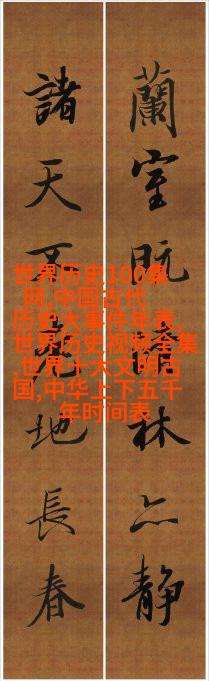 蘭室既林亦靜
諸天地長春
世界历史100集
网,中国古代
历史大事件年表,
世界历史视频全集
,世界十大文明古
国,中华上下五千
年时间表